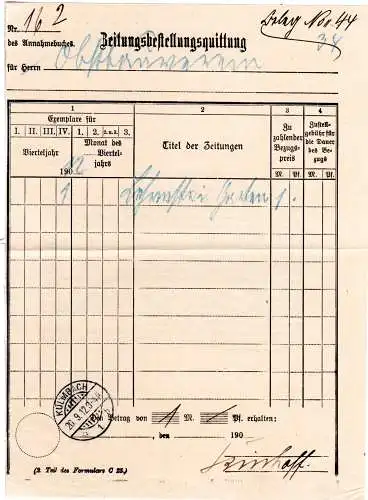 Nr. 162
des Annahmebuches.
Zeitungsbestellungsquittung
Beleg No. 44
34
für Herrn Obstbauverein
1
2
3
4
Exemplare für
I. II. III. IV. 1. 2. 3.
Vierteljahr
Monat des Vierteljahrs
1902
Titel der Zeitungen
Zu zahlender Bezugspreis
Zustellgebühr für die Dauer des Bezugs
M. Pf. M. Pf.
1 1.
KULMBACH
20.9.12.
1
Den Betrag von 1 M. Pf. erhalten:
, den 190
(2. Teil des Formulars C 25.)